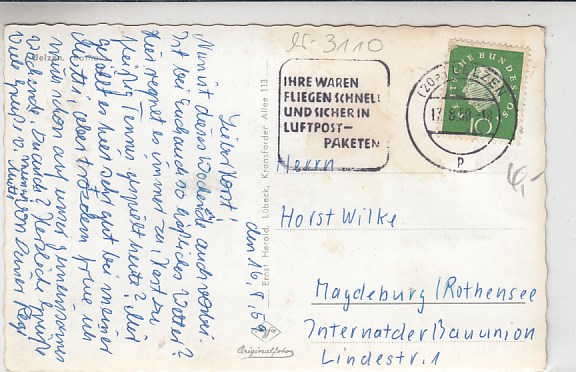 W-3110
Uelzen.
IHRE WAREN
FLIEGEN SCHNELL
UND SICHER IN
LUFTPOST-
PAKETEN
(20a) UELZEN
DEUTSCHE BUNDESPOST
10
P
4,-
den 16.8.59
Lieber Horst!
Nun ist dieses Wochenende auch vorbei.
Ist bei Euch auch so häßliches Wetter?
Hier regnet es immer zu. Hast du
fleißig Tennis gespielt heute? Mir
gefällt es hier sehr gut bei meiner
Mutti, aber trotzdem freue ich
mich schon auf unser gemeinsames
Wochenende. Du auch? Herzliche Grüße
Viele Grüße v. meiner Mutti von Deiner
Ernst Herold, Lübeck, Kronsforder Allee 113
Agfa
Originalfoto
Herrn
Horst Wilke
Magdeburg/Rothensee
Internat der Bauunion
Lindestr. 1